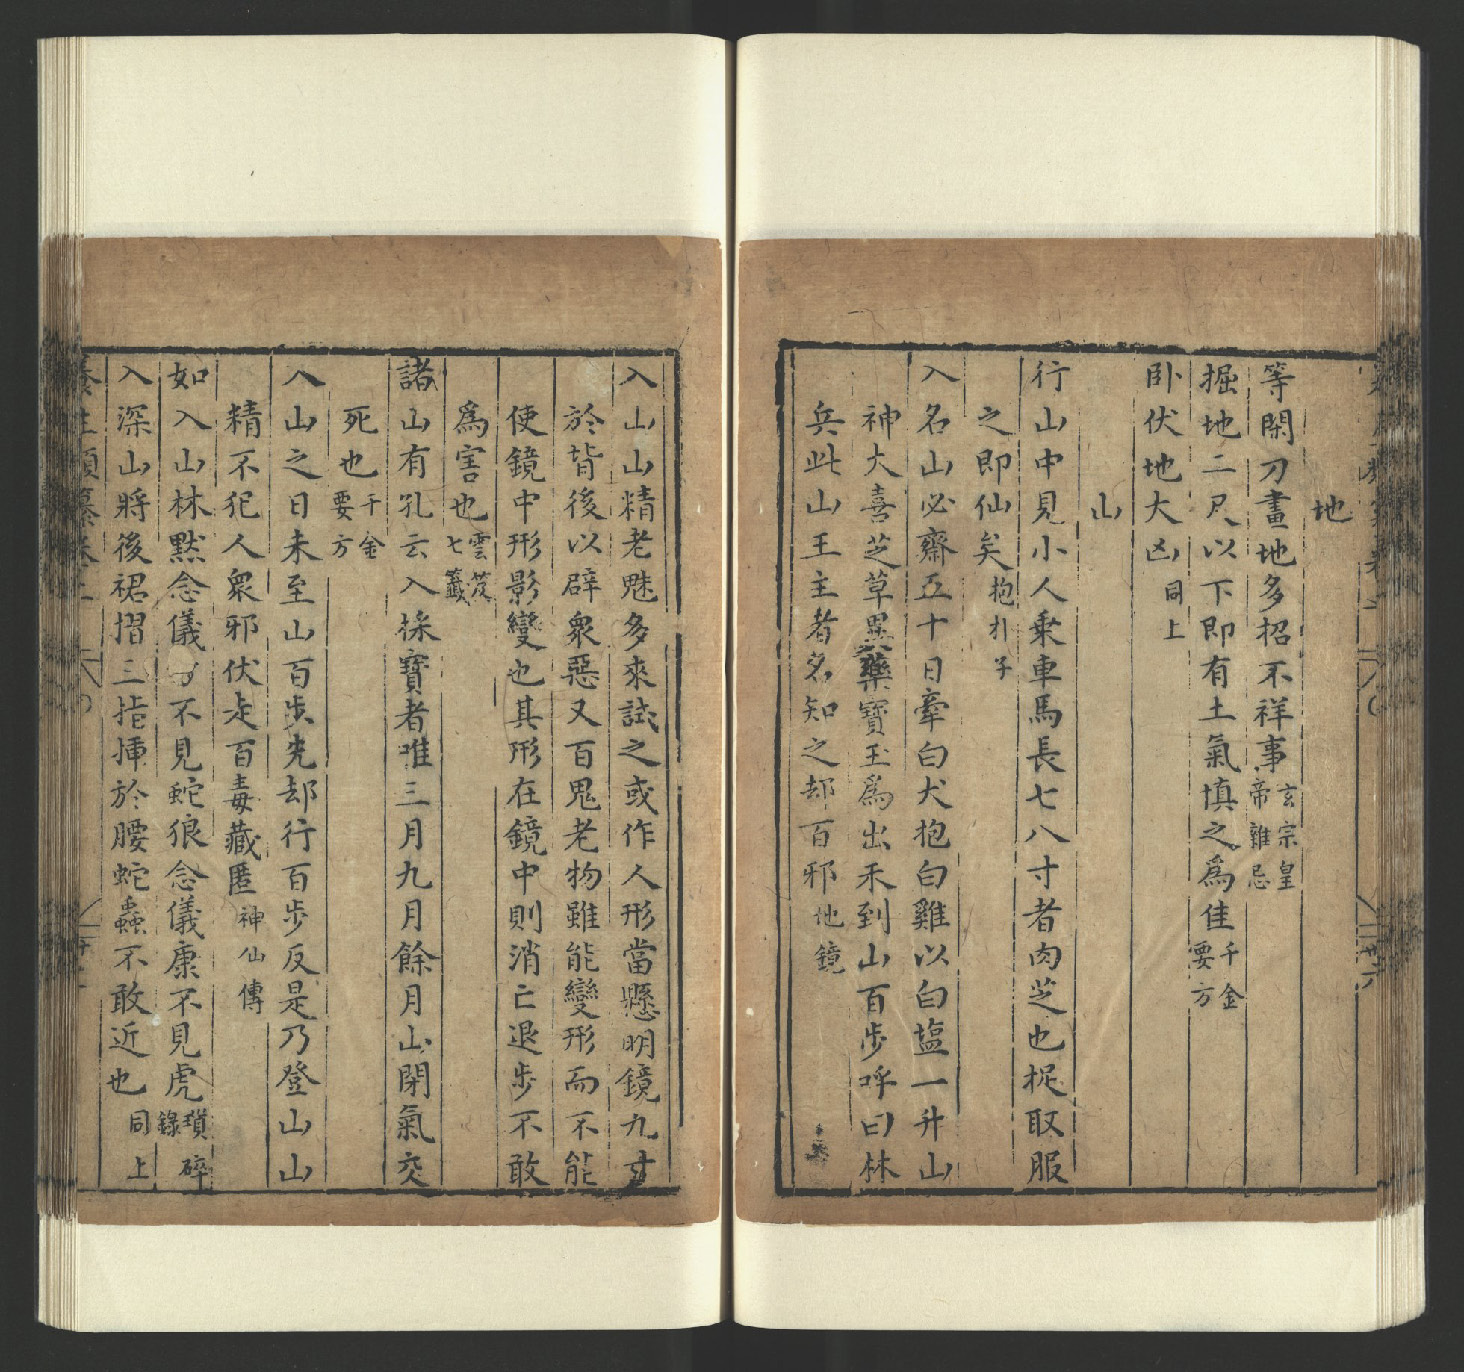 地
等閑刀畫地多招不祥事玄宗皇帝雜忌
掘地二尺以下即有土氣慎之爲佳千金要方
卧伏地大凶同上
山
行山中見小人乗車馬長七八寸者肉芝也捉取服
之即仙矣抱朴子
入名山必齋五十日牽白犬抱白雞以白塩一升山
神大喜芝草異藥寶玉爲出未到山百步呼曰林
兵此山王主者名知之却百邪地鏡
入山山精老魅多來試之或作人形當懸明鏡九寸
於背後以辟衆惡又百鬼老物雖能變形而不能
使鏡中形影變也其形在鏡中則消亡退步不敢
爲害也雲笈七籤
諸山有孔云入採寶者唯三月九月餘月山閉氣交
死也千金要方
入山之日未至山百步先却行百步反是乃登山山
精不犯人衆邪伏走百毒藏匿神仙傳
如入山林黙念儀方不見蛇狼念儀康不見虎瑣碎錄
入深山將後裙摺三指挿於腰蛇蟲不敢近也同上